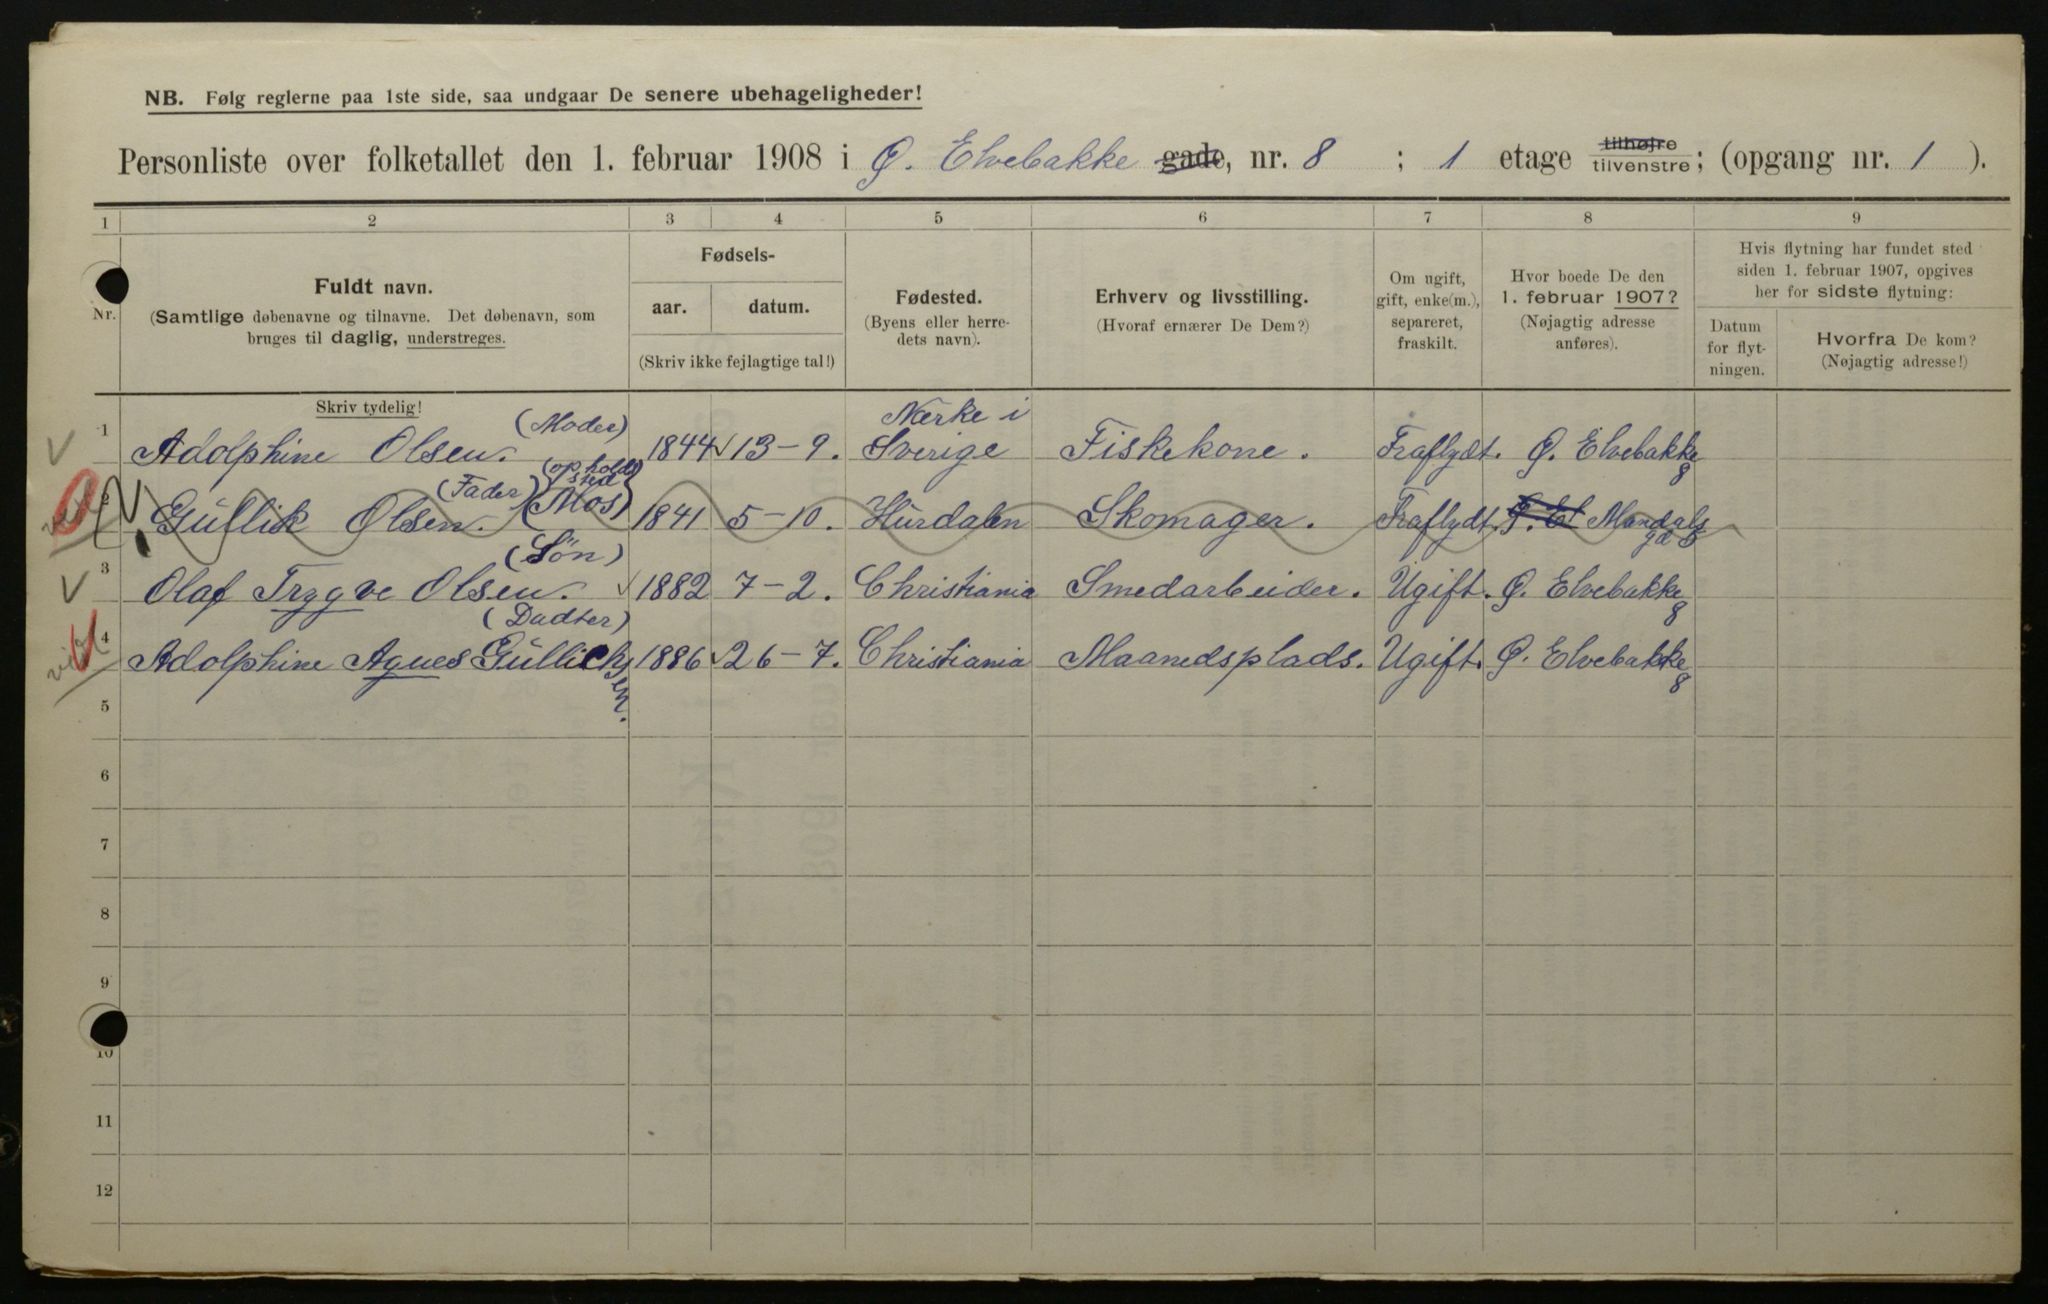 NB. Følg reglerne paa 1ste side, saa undgaar De senere ubehageligheder!
Personliste over folketallet den 1. februar 1908 i Ø. Elvebakke gade, nr. 8 ; 1 etage tilhøjre tilvenstre; (opgang nr. 1 ).
1 2 3 4 5 6 7 8 9
Nr.
Fuldt navn.
(Samtlige døbenavne og tilnavne. Det døbenavn, som
bruges til daglig, understreges.
Skriv tydelig!
Fødsels-
aar. datum.
(Skriv ikke fejlagtige tal!)
Fødested.
(Byens eller herre-
dets navn).
Erhverv og livsstilling.
(Hvoraf ernærer De Dem?)
Om ugift,
gift, enke(m.),
separeret,
fraskilt.
Hvor boede De den
1. februar 1907?
(Nøjagtig adresse
anføres).
Hvis flytning har fundet sted
siden 1. februar 1907, opgives
her for sidste flytning:
Datum
for flyt-
ningen.
Hvorfra De kom?
(Nøjagtig adresse!)
(Moder) Nærke i
1 Adolphine Olsen. 1844 13-9. Sverige Fiskekone. Fraflydt. Ø. Elvebakke 8
(Fader) (ophold sted Mos)
2 Gullik Olsen. 1841 5-10. Hurdalen Skomager. Fraflydt. Ø. El Mandals gd 5
(Søn)
3 Olaf Trygve Olsen. 1882 7-2. Christiania Smedarbeider. Ugift. Ø. Elvebakke 8
(Dadter)
4 Adolphine Agnes Gullichsen. 1886 26-7. Christiania Maanedsplads. Ugift. Ø. Elvebakke 8
5
6
7
8
9
10
11
12